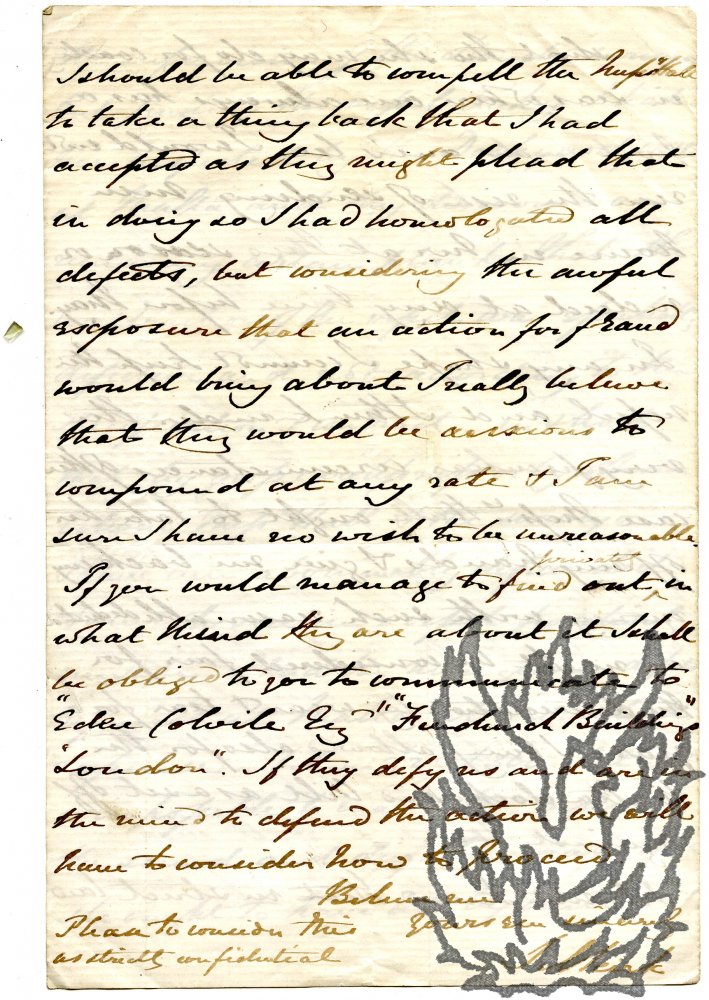 I should be able to compell the
to take a thing back that I had
accepted as they might plead that
in doing so I had homologated all
defects, but considering the awful
exposure that an action for fraud
would bring about I really believe
that they would be anxious to
compound at any rate & I am
sure I have no wish to be unreasonable.
privately
If you could manage to find out ‸ in
what mind they are about it I shall
be obliged to you to communicate to
" Colvile Esq" " Buildings"
"London". If they defy us and are in
the mind to defend the action we will
have to consider how to proceed.
Believe me
Yours sincerely
Please to consider this
as strictly confidential